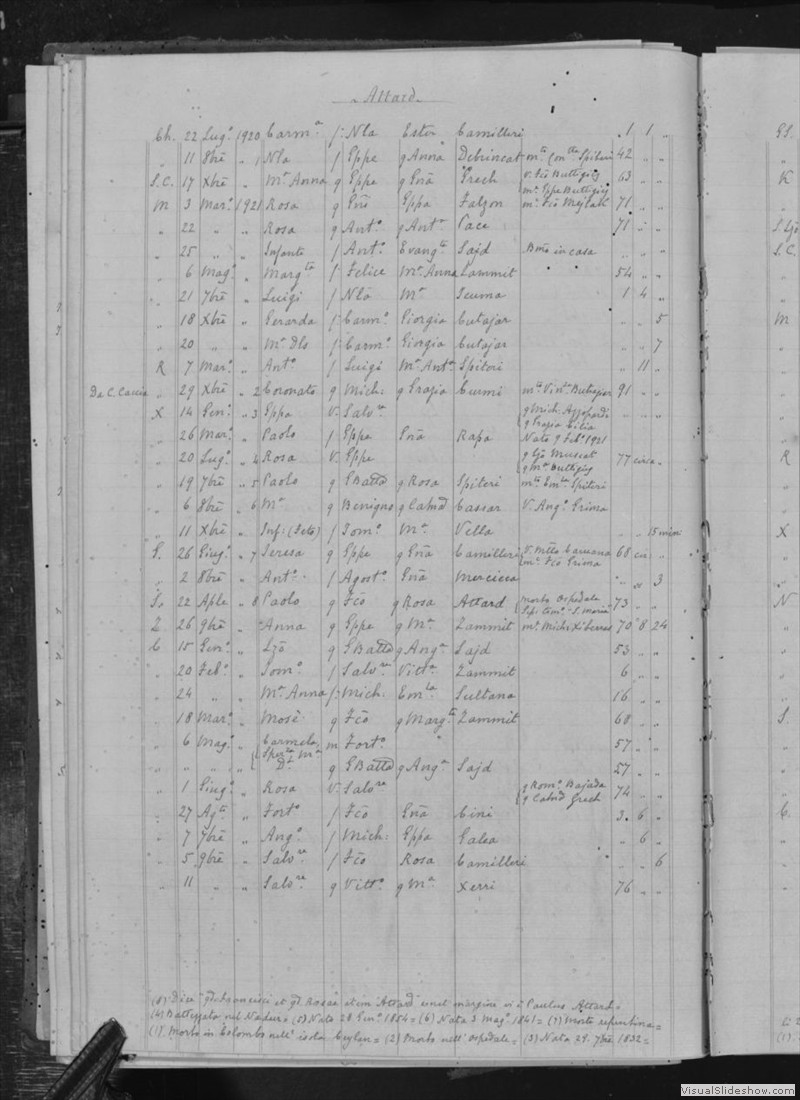 Attard
Ch. 22 Lug.o 1920 Carm.a f. Nla Ester Camilleri 1 1 "
" 11 8bre " " Nla f Gppe q Anna Debrincat m.to Con.tta Spiteri 42 " "
S.C. 17 Xbre " " M.a Anna q Gppe q Gña Grech v. Fcõ Buttigieg 63 " "
m.e Gppe Buttigieg
M 3 Mar.o 1921 Rosa q Gnõ Gppa Falzon m.e Fcõ Mejlak 71 " "
" 22 " " Rosa q Ant.o q Ant.a Pace 71 " "
" 25 " " Infante f Ant.o Evang.ta Sajd Bmo in casa " " "
" 6 Mag.o " Marg.ta f. Felice M.a Anna Zammit 54 " "
" 21 7bre " Luigi f Nlã M.a Scuma 1 4 "
" 18 Xbre " Gerarda f. Carm.o Giorgia Cutajar " " 5
" 20 " " M.a Dls f. Carm.o Giorgia Cutajar " " 7
R 7 Mar.o " Ant.o f Luigi M.a Ant.a Spiteri " 11 "
Da C. Caccia " 29 Xbre " 2 Coronato q Mich: q Grazia Cucmi m.to Vin.ta Buttigieg 91 " "
X 14 Gen.o " 3 Gppa V. Salv.re q Mich: Azzopardi " " "
q Grazia Cilia
" 26 Mar.o " Paolo f Gppe Gnã Rapa Nato 9 Feb.o 1921
" 20 Lug.o " 4 Rosa V. Gppe q Ljo Muscat 77 circa "
q M.a Buttigieg
" 19 7bre " 5 Paolo q GBatta q Rosa Spiteri m.to Em.la Spiteri
" 6 8bre " 6 M.a q Benigno q Catnã Cassar V. Ang.o Grima
" 11 Xbre " Inf: (Feto) f Tom.o M.a Vella " " 15 min
G. 26 Giug.o " 7 Teresa q Gppe q Gnã Camilleri V. Mtto Caruana 60 cir "
m.e Fcõ Grima
" 2 8bre " Ant.o f Agost.o Gnã Mercieca " " 3
S. 22 Aple " 8 Paolo q Fcõ q Rosa Attard morto Ospedale 73 " "
Z 26 9bre " Anna q Gppe q M.a Zammit m.e Mich: Xiberras 70 8 24
C 15 Gen.o " Lzõ q GBatta q Ang.a Sajd 53 " "
" 20 Feb.o " Tom.o f Salv.re Vitt.a Zammit 6 "
" 24 " " M.a Anna f. Mich: Em.la Sultana 16 " "
" 18 Mar.o " Mosè q Fcõ q Marg.ta Zammit 60 " "
" 6 Mag.o " Carmela, m Fort.o " 57 " "
" " " " D.a q GBatta q Ang.a Sajd 27 " "
" 1 Giug.o " Rosa V. Salv.re q Rom.o Bajada 74 " "
q Catnã Grech
" 27 Ag.to " Fort.o f Fcõ Gnã Cini 3 6 "
" 7 7bre " Ang.o f Mich: Gppa Galea " 6 "
" 5 9bre " Salv.re f Fcõ Rosa Camilleri " " 6
" 11 " " Salv.re q Vitt.o q M.a Xerri 76 " "
(8) Dice "qd. Francisci et qd. Rosae etim Attard" e nel margine vi è Paulus Attard =
(4) Battezzato nel Nadur = (5) Nata 28 Gin.o 1854 = (6) Nata 3 Mag.o 1841 = (7) Morte repentina =
(1) Morto in Colombo nell' isola Ceylon = (2) Morto nell' Ospedale = (3) Nata 29. 7bre 1832 =
VisualSlideshow.com